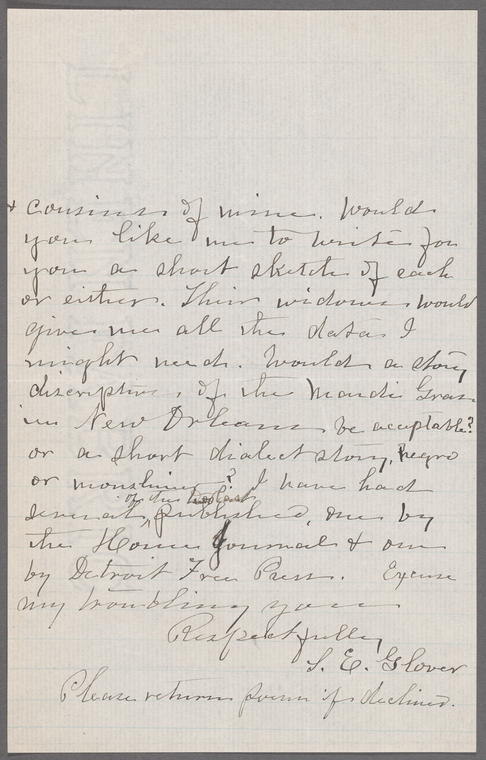 & cousins of mine. Would
you like me to write for
you a short sketch of each
or either. Their widows would
give me all the data I
might need. Would a story
discriptive, of the Mardi Gras
in New Orleans be acceptable?
or a short dialect story, negro
or monshine? I have had
of this
several, published, one by
the Home Journal & one
by Detroit Free Press. Excuse
my troubling you
Respectfully
S. E. Glover
Please return poem if declined.